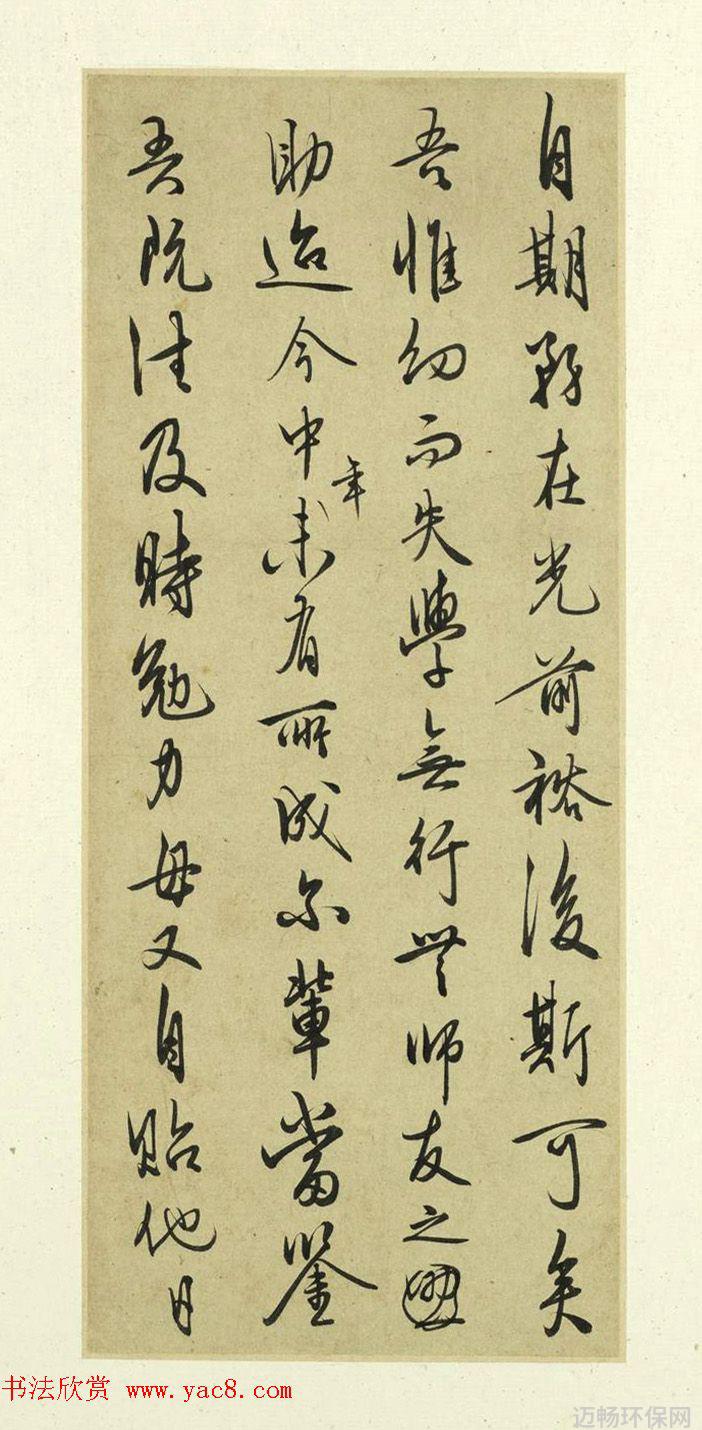 自期務在光前裕後斯可矣
吾惟幼而失學無行無師友之
助迨今中年未有所成尔輩當鑒
吾既往及時勉力毋又自貽他日
书法欣赏 www.yac8.com
迈畅环保网